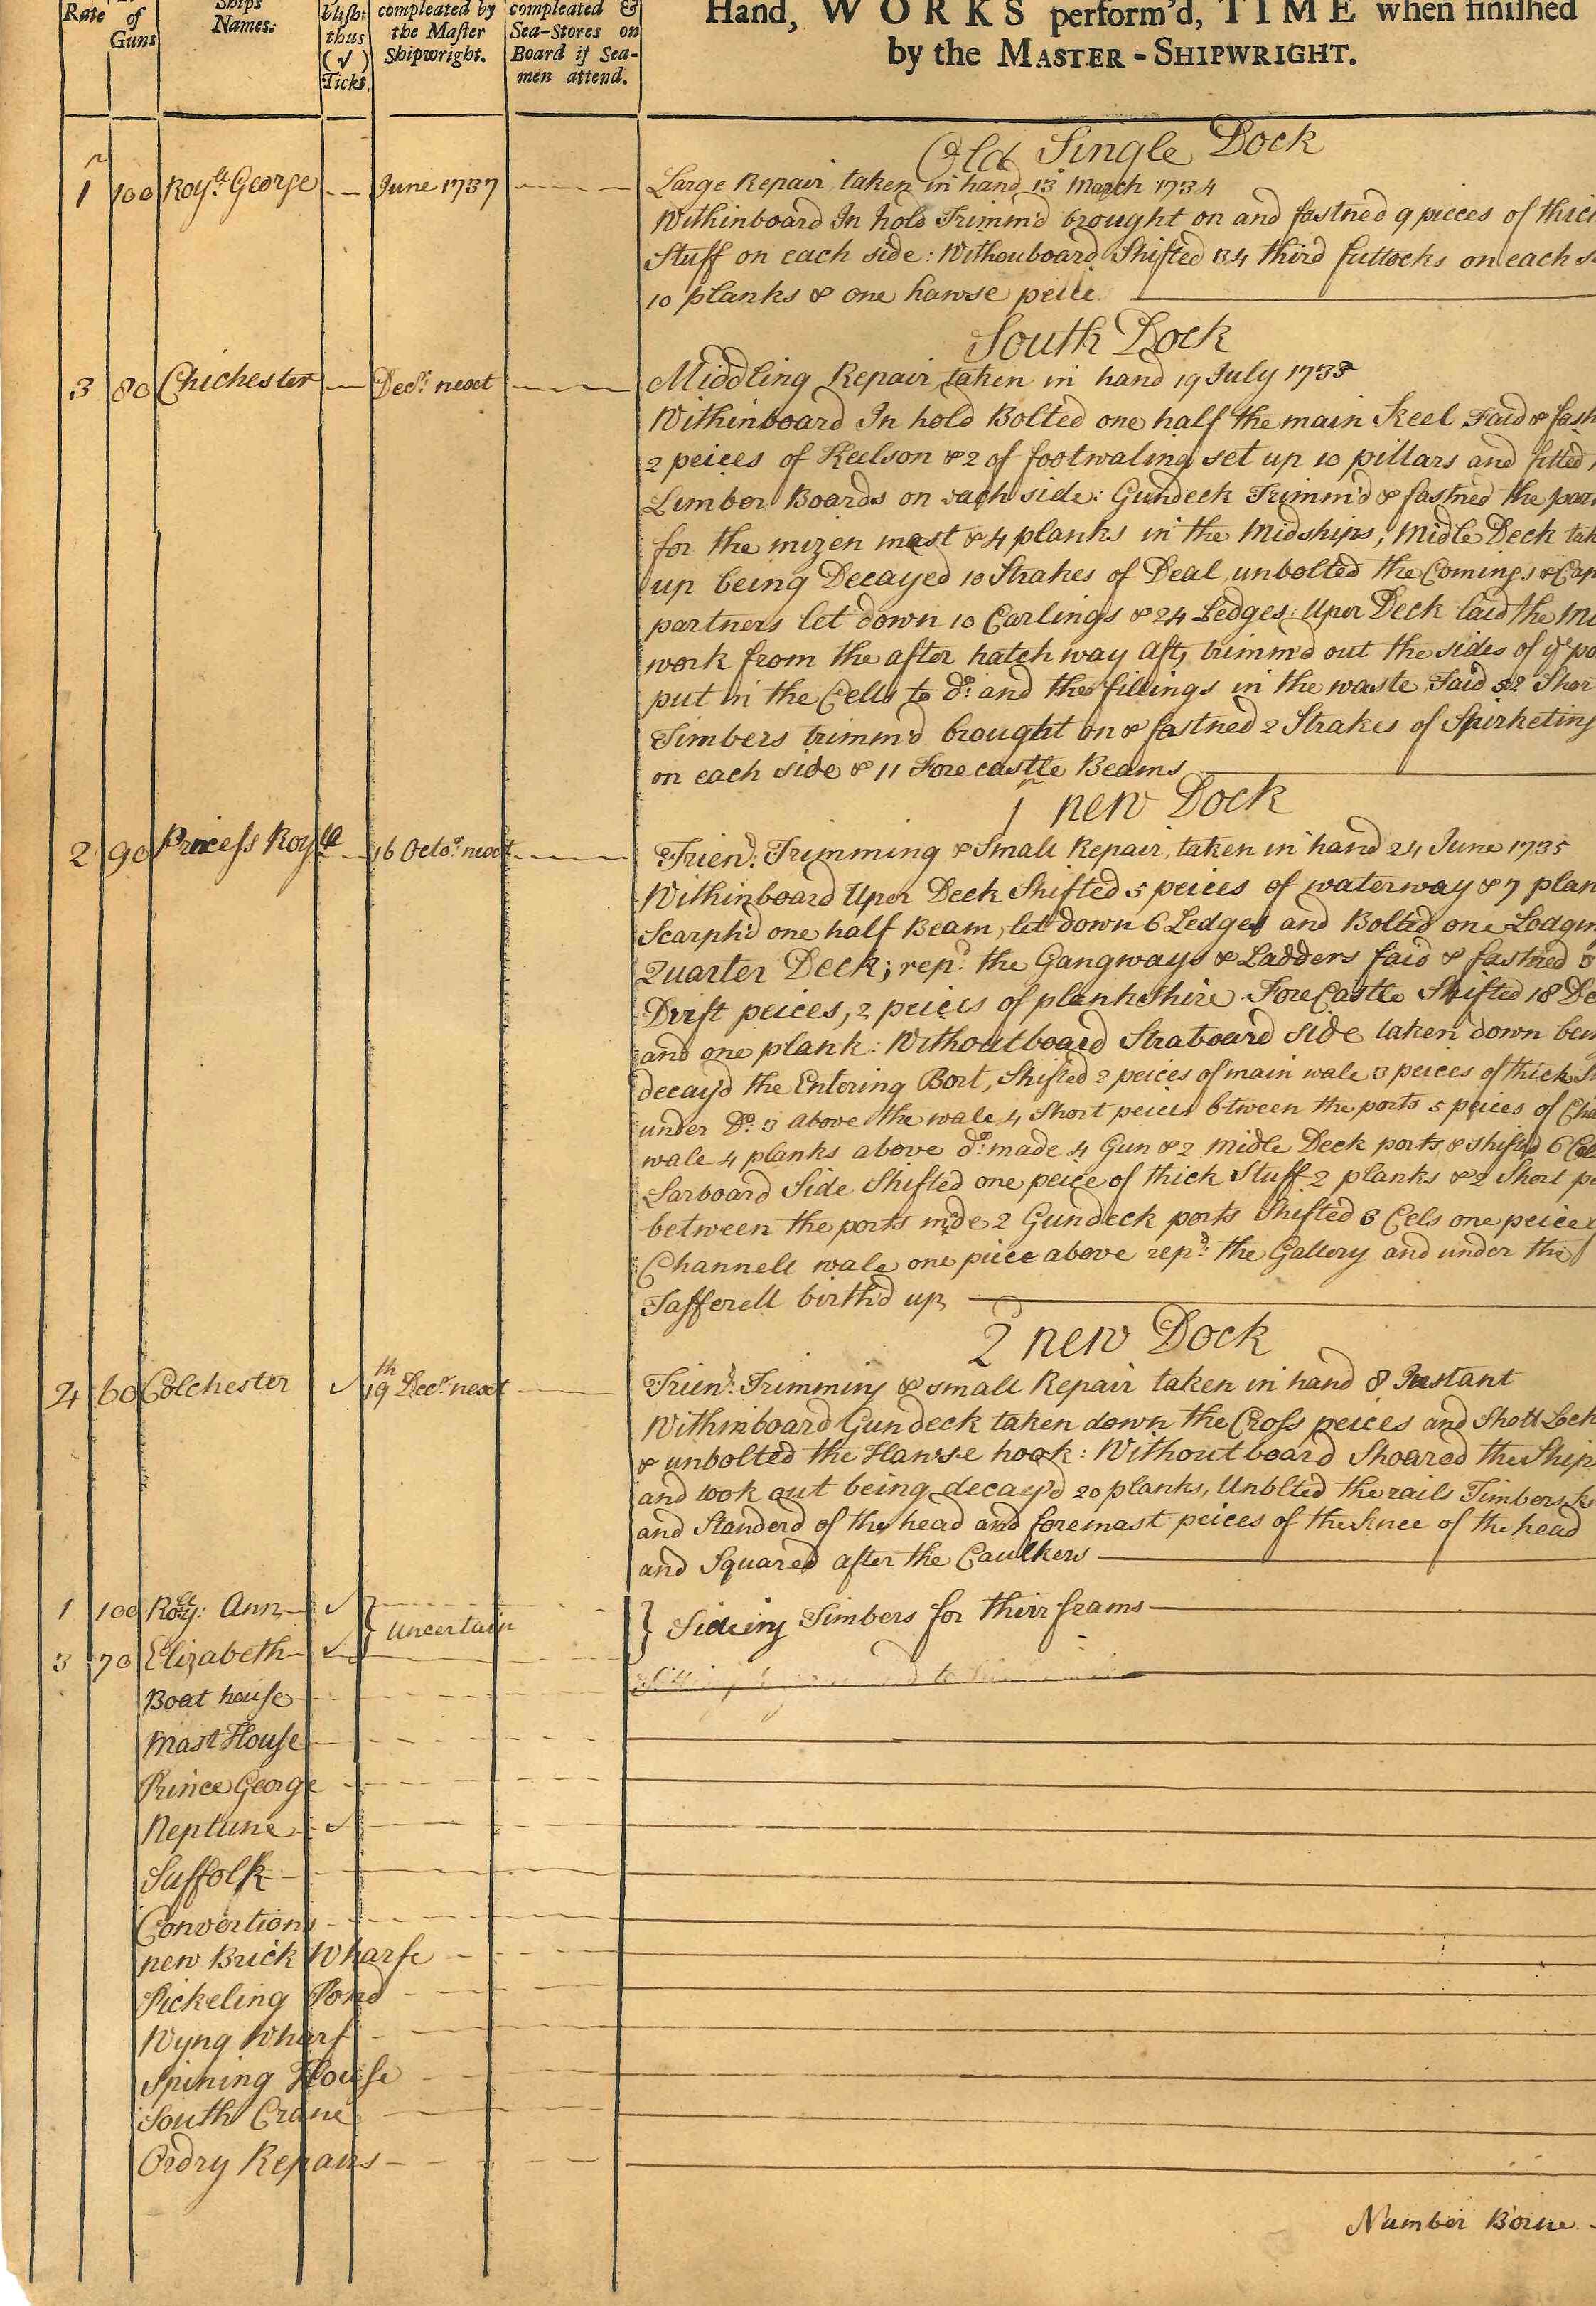 Rate
of
Guns
Ships
Names:
blish:
thus
(√)
Ticks.
compleated by
the Master
Shipwright.
compleated &
Sea-Stores on
Board if Sea-
men attend.
Hand, WORKS perform'd, TIME when finished
by the MASTER-SHIPWRIGHT.
Old Single Dock
1 100 Roy.ll George June 1737 Large Repair taken in hand 13 March 1734
Withinboard In hold Trimm'd brought on and fastned 9 pieces of thick
Stuff on each side: Withouboard Shifted 34 third futtocks on each
10 planks & one hawse peice
South Dock
3 80 Chichester Dec.r next Middling Repair taken in hand 19 July 1733
Withinboard In hold Bolted one half the main Keel Faid & fast
2 peices of Keelson & 2 of footwaling set up 10 pillars and fitted
Limber Boards on each side: Gundeck Trimm'd & fastned the par
for the mizen mast & 4 planks in the Midships; Midle Deck tak
up being Decayed 10 Strakes of Deal unbolted the Comings & Cap
partners let down 10 Carlings & 24 Ledges: Uper Deck laid the
work from the after hatch way Aft, trimm'd out the sides of ye po
put in the Cells to do: and the fillings in the waste Faid 52 Shor
Timbers trimm'd brought on & fastned 2 Strakes of Spirketing
on each side & 11 Forecastle Beams
1 new Dock
2 90 Princess Roy.ll 16 Octo.r next Trien.l: Trimming & Small Repair, taken in hand 24 June 1735
Withinboard Uper Deck Shifted 5 peices of waterway & 7 plan
Scarph'd one half Beam, let down 6 Ledges and Bolted one Lodgin
Quarter Deck; rep.d the Gangways & Ladders faid & fastned
Drift peices, 2 peices of plankshire. ForeCastle Shifted 18 De
and one plank: Without board Straboard side taken down bein
decay'd the Entering Port, Shifted 2 peices of main wale 3 peices of thick
under Do. 3 above the wale 4 Short peices btween the ports 5 peices of Cha
wale 4 planks above do: made 4 Gun & 2 Midle Deck ports & shifted 6 Cel
Larboard Side Shifted one peice of thick Stuff 2 planks & 2 Short pe
between the ports made 2 Gundeck ports Shifted 3 Cels one peice
Channell wale one piece above rep.d: the Gallery and under the
Tafferell birth'd up
2 new Dock
4 60 Colchester ✓ 19th Decr. next Trien.l: Trimming & small Repair taken in hand 8 Instant
Withinboard Gundeck taken down the Cross peices and Shott Lock
& unbolted the Hawse hook: Without board Shoared the Ship
and took out being decay'd 20 planks, Unblted the rails Timbers
and Standerd of the head and foremast peices of the knee of the head
and Squared after the Caulkers
1 100 Roy.ll: Ann ✓ } Uncertain } Sideing Timbers for their frams
3 70 Elizabeth ✓
Boat house
Mast House
Prince George
Neptune ✓
Suffolk
Convertions
new Brick Wharfe
Pickeling Pond
Wyng Wharf
Spining House
South Crane
Ordry Repairs
Number Borne